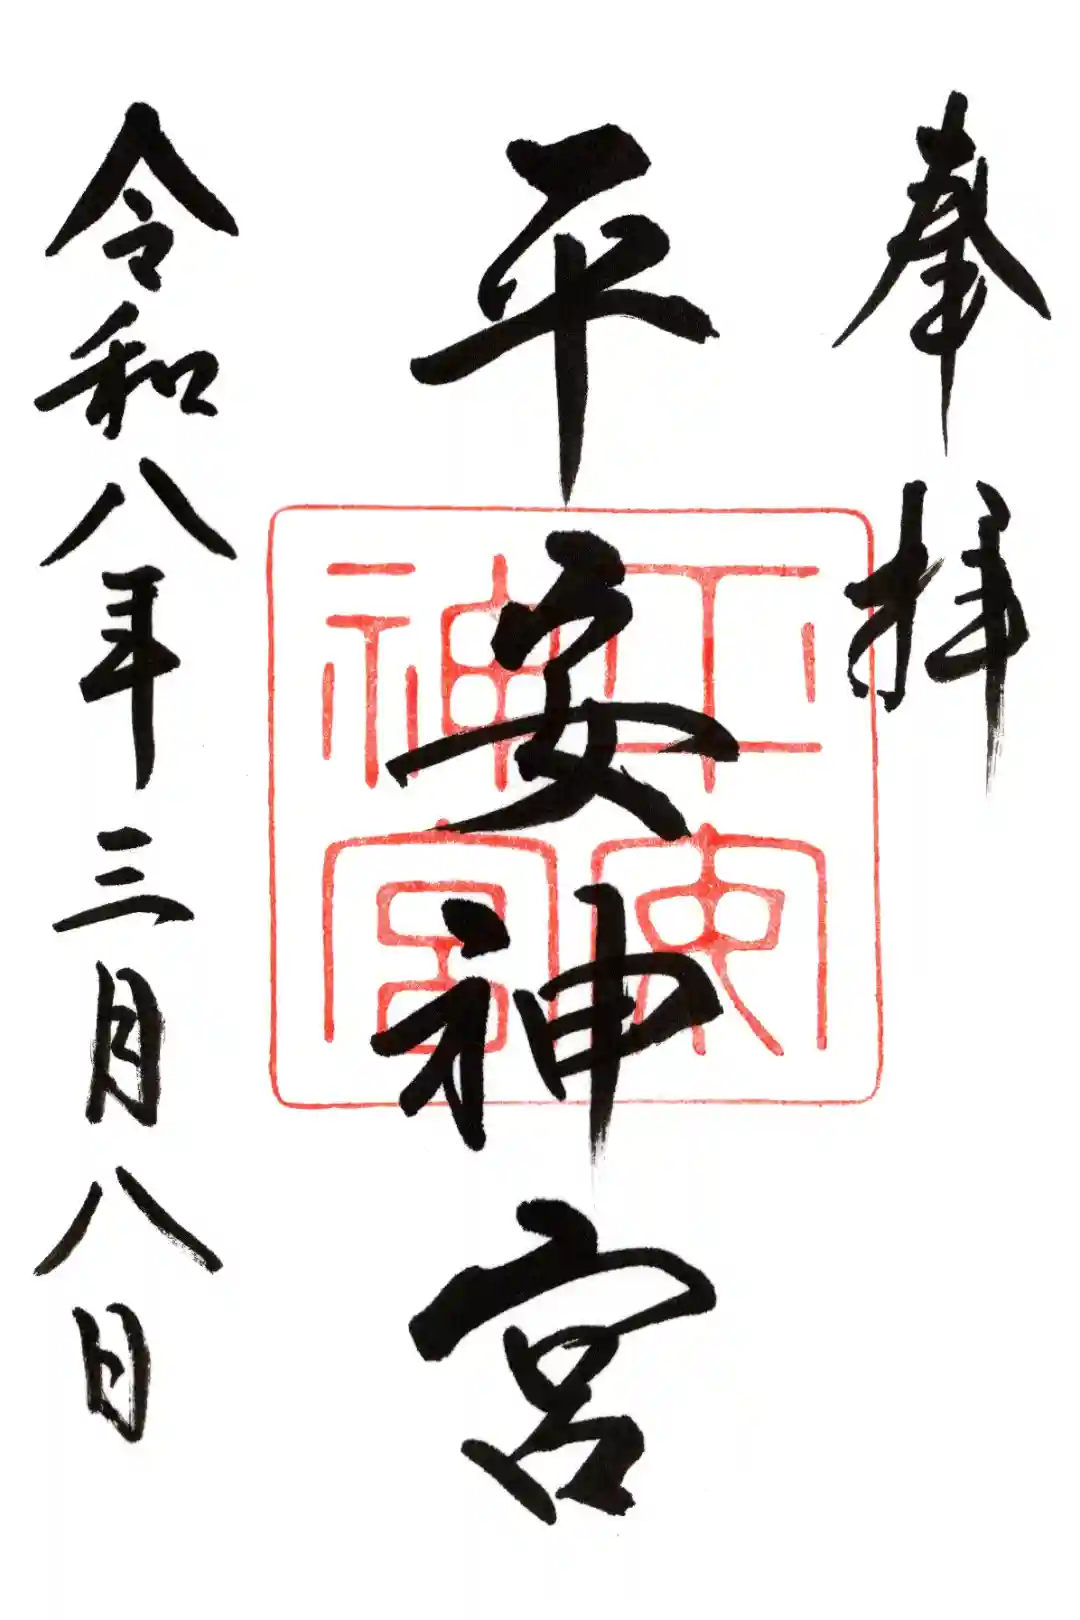 奉拝
平安神宮
平安神宮
令和八年三月八日